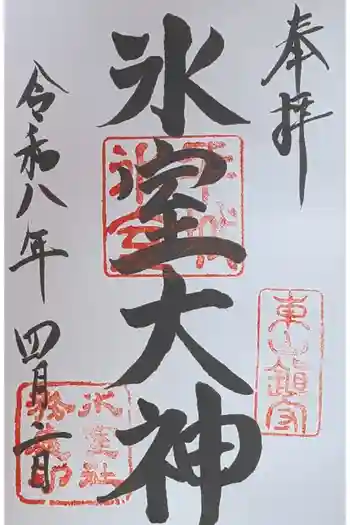 奉拝
氷室大神
東山鎮守
氷室社務之印
令和八年四月二日